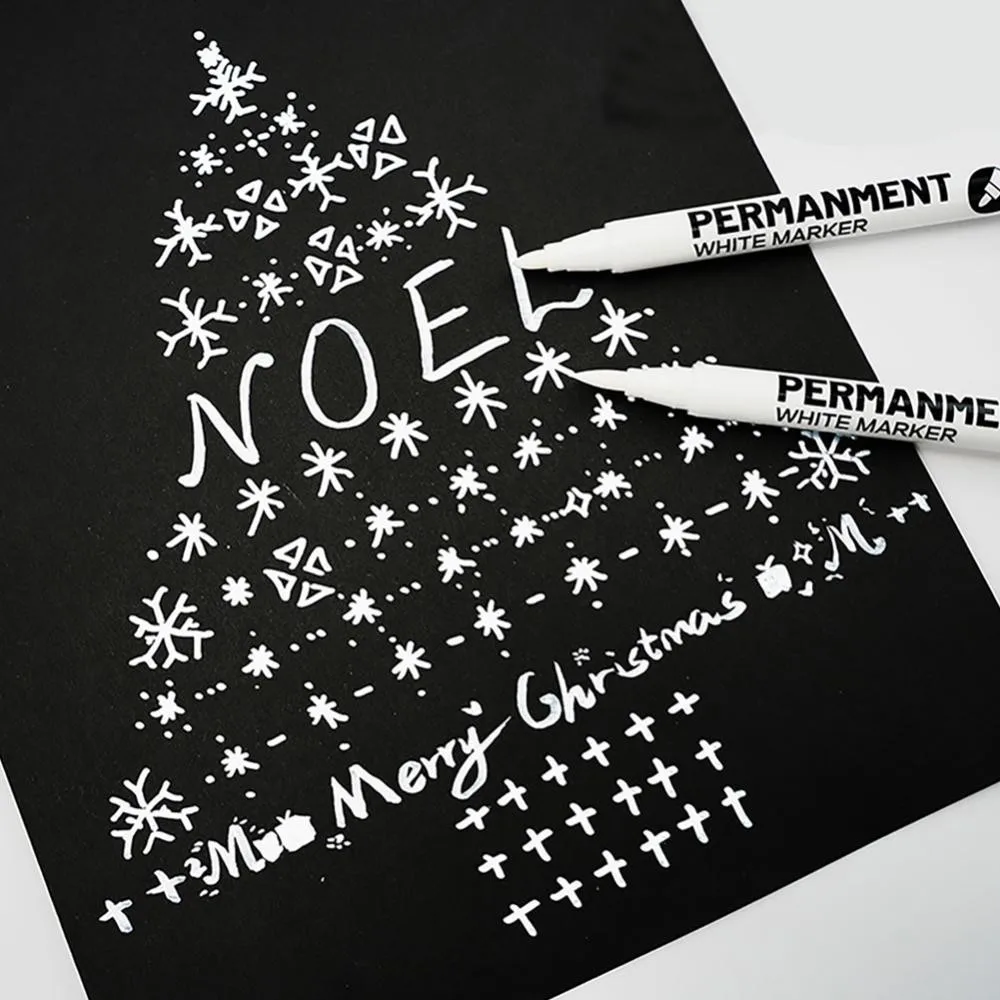 NOEL
PERMANMENT
WHITE MARKER
PERMANME
WHITE MARKER
M Merry Christmas M